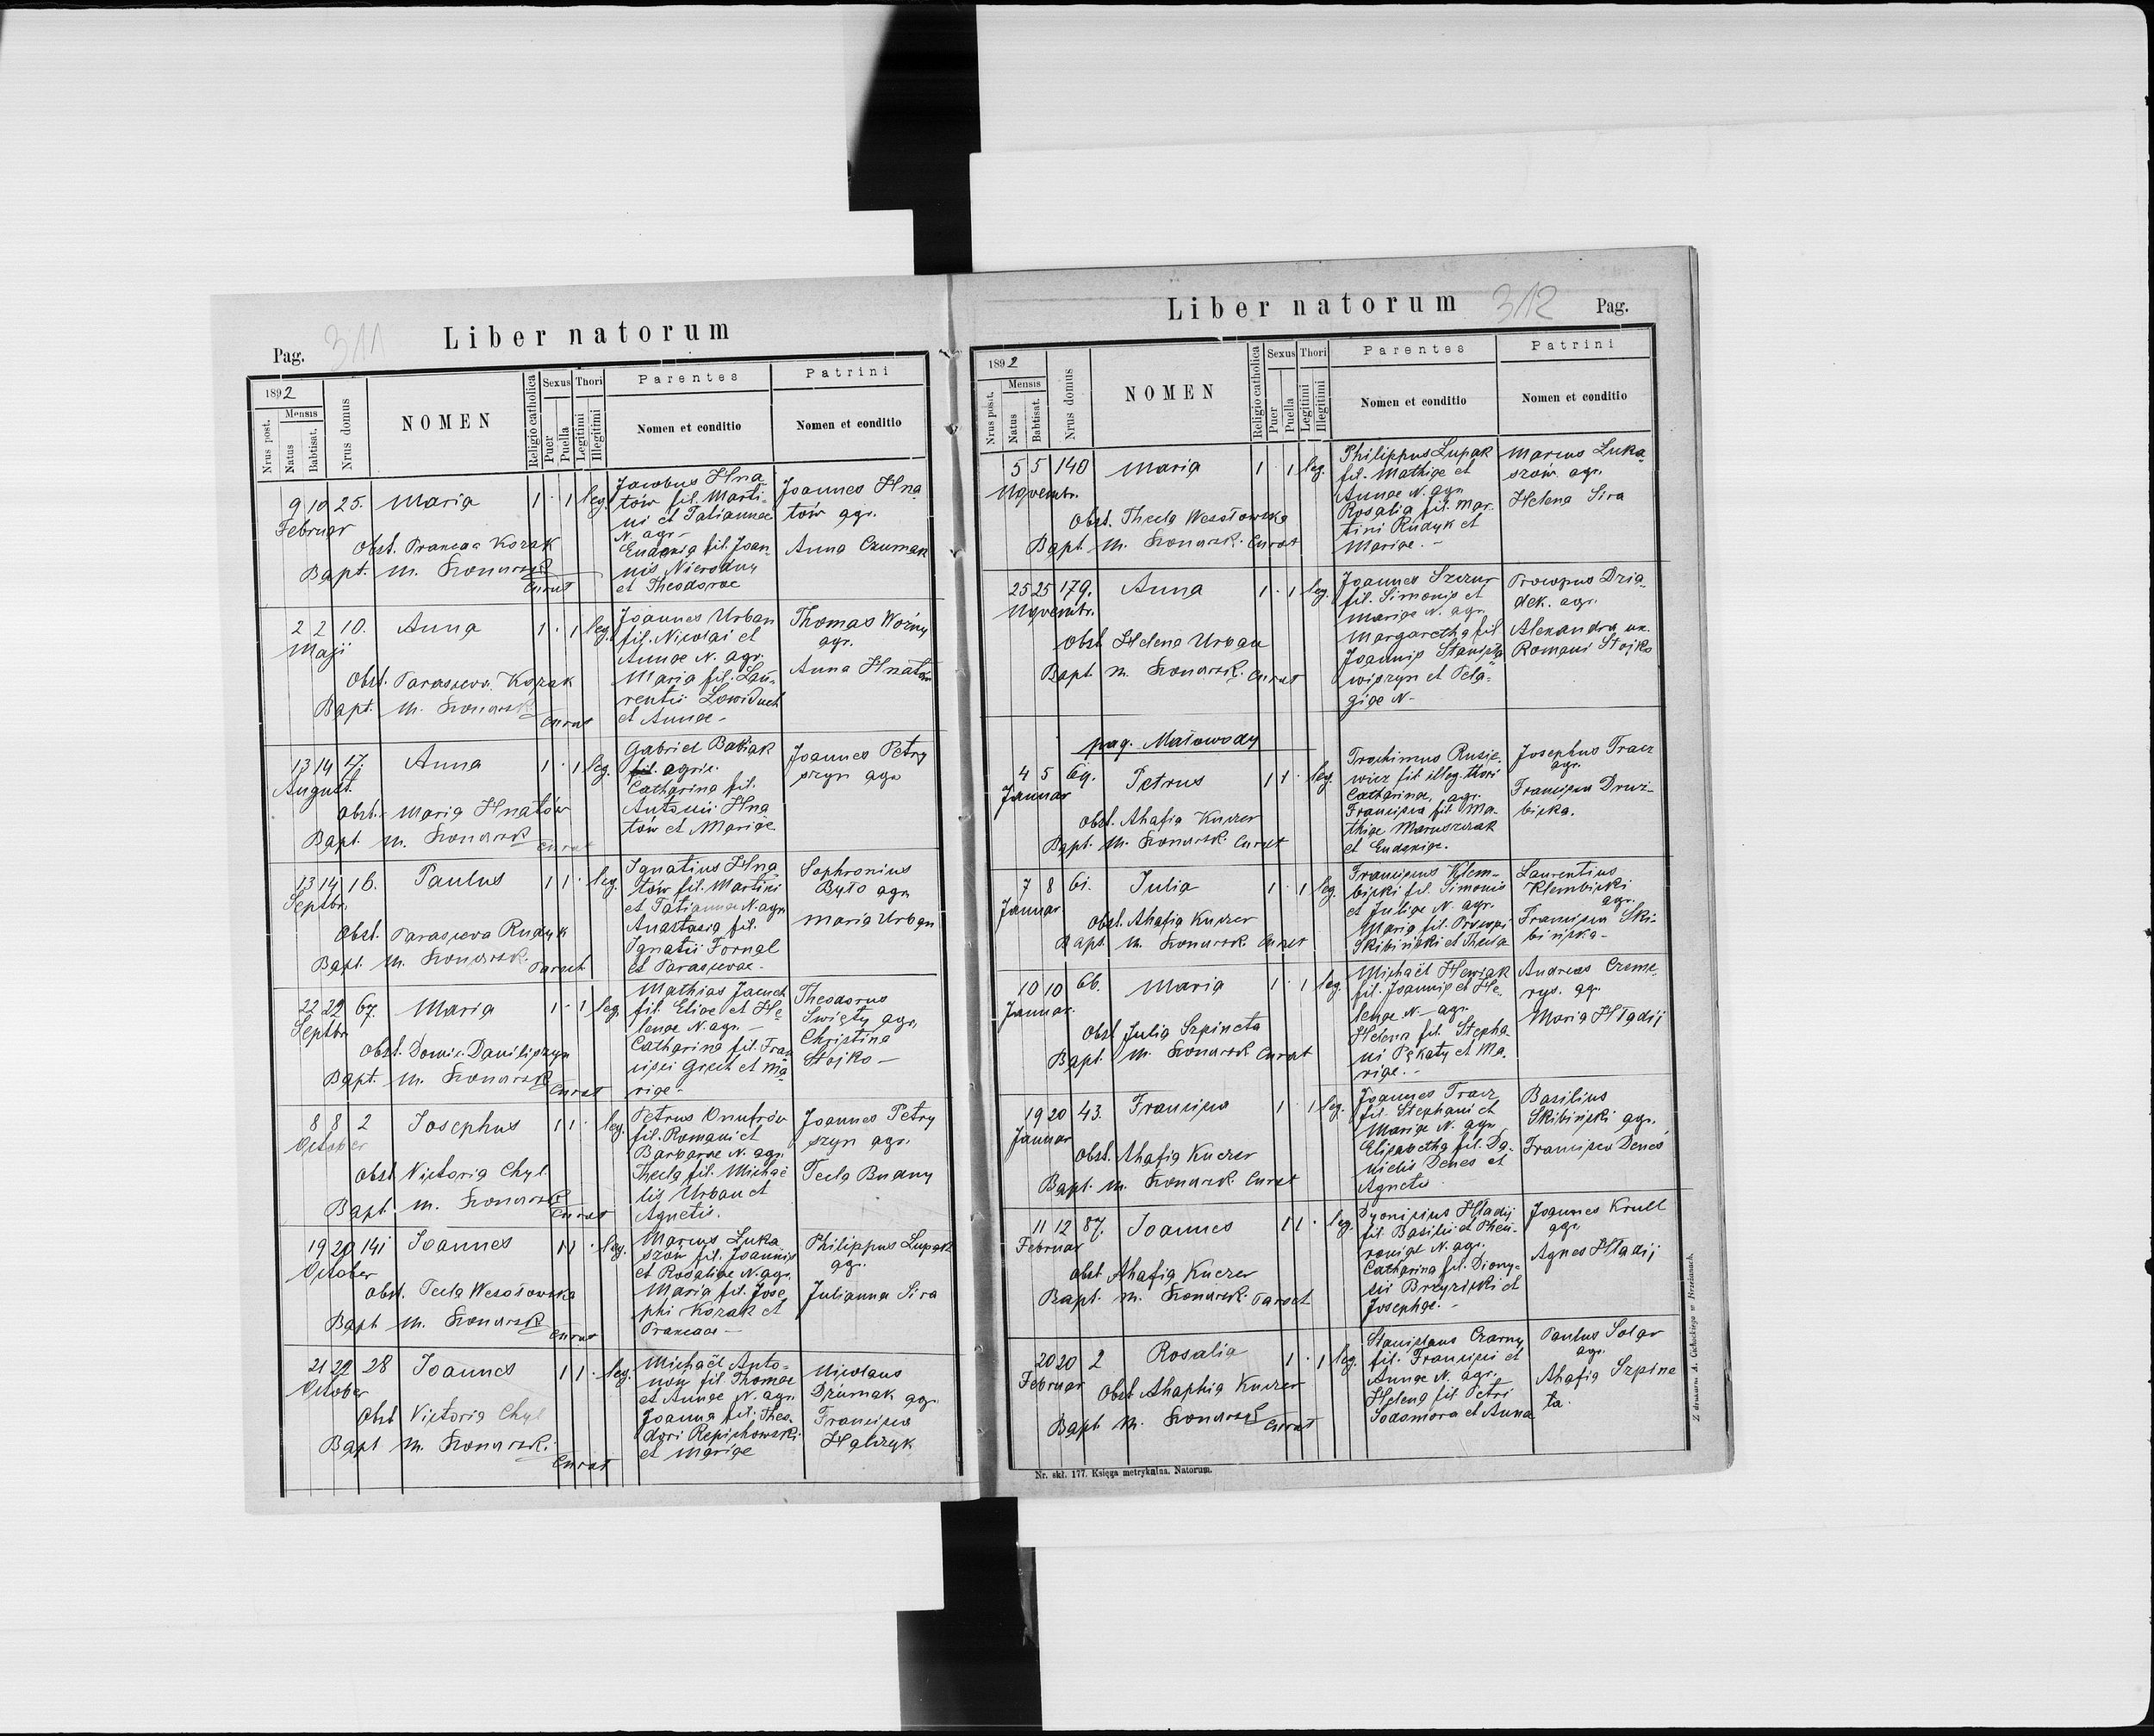 Pag. 311
Liber natorum
1892
Nrus post.
Mensis
Natus
Babtisat.
Nrus domus
NOMEN
Religio catholica
Sexus
Puer
Puella
Thori
Legitimi
Illegitimi
Parentes
Nomen et conditio
Patrini
Nomen et conditio
9 10 25. Maria 1 · 1 leg.
Februar
Obst. Kozak
Bapt. M.
Curat
Jacobus Hna
tów fil. Marti
ni et Tatiannae
N. agr.
Eudoxia fil. Joan
nis
et Theodorae
Joannes Hna
tów agr.
Anna Czumak
2 2 10. Anna 1 · 1 leg.
Maji
Obst. Parascev. Kozak
Bapt. M.
Curat
Joannes Urban
fil. Nicolai et
Annae N. agr.
Maria fil. Lau-
rentii
et Annae -
Thomas Woźny
agr.
Anna Hnatów
13 14 17. Anna 1 · 1 leg.
August.
Obst. Maria Hnatów
Bapt. M.
Curat
Gabriel Babiak
fil. agric.
Catharina fil.
Antonii Hna
tów et Mariae
Joannes Petry
szyn agr.
13 14 16. Paulus 1 1 · leg.
Septbr.
Obst. Parasceva Rudyk
Bapt. M.
Paroch
Ignatius Hna
tów fil. Martini
et Tatiannae N. agr.
Anastasia fil.
Ignatii Fornal
et Parascevae.
Sophronius
Było agr.
Maria Urban
22 22 67. Maria 1 · 1 leg.
Septbr.
Obst. Daniliszyn
Bapt. M.
Curat
Mathias
fil. Eliae et He
lenae N. agr. -
Catharina fil. Fran
cisci et Ma
riae -
Theodorus
Swięty agr.
Christina
Stojko -
8 8 2 Josephus 1 1 · leg.
October
Obst. Victoria Chyl
Bapt. M.
Curat
Petrus Onufrów
fil. Romani et
Barbarae N. agr.
Thecla fil. Michaë
lis Urban et
Agnetis.
Joannes Petry
szyn agr.
Tecla Budny
19 20 141 Joannes 1 1 · leg.
October
Obst. Tecla Wesołowska
Bapt. M.
Curat
Marcus Luka
szów fil. Joannis
et Rosaliae N. agr.
Maria fil. Jose
phi Kozak et
Philippus Lupak
agr.
Julianna Sira
21 22 28 Joannes 1 1 · leg.
October
Obst. Victoria Chyl
Bapt. M.
Curat
Michaël Anto=
now fil. Thomae
et Annae N. agr.
Joanna fil. Theo
dori
et Mariae
Nicolaus
agr.
Francisca
Halczyk
Liber natorum 312 Pag.
1892
Nrus posit.
Mensis
Natus
Babtisat.
Nrus domus
NOMEN
Religio catholica
Sexus
Puer
Puella
Thori
Legitimi
Illegitimi
Parentes
Nomen et conditio
Patrini
Nomen et conditio
5 5 140 Maria 1 · 1 leg.
Novembr.
Obst. Thecla Wesołowska
Bapt. M. Curat
Philippus Lupak
fil. Mathiae et
Annae N. agr.
Rosalia fil. Mar
tini Rudyk et
Mariae. -
Marcus Luka
szów. agr.
Helena Sira
25 25 179. Anna 1 · 1 leg.
Novembr.
Obst. Helena Urban
Bapt. M. Curat
Joannes Szczur
fil. Simonis et
Mariae N. agr.
Margaretha fil.
Joannis
et Pela=
giae N -
Procopius Dzia
dek. agr.
Alexandra ux.
Romani Stojko
pag. Małowody
4 5 69. Petrus 1 1 · leg.
Januar
Obst. Ahafia Kuczer
Bapt. M. Curat
Trochimus Rusie
wicz fil. illeg. thori
Catharinae, agr.
Francisca fil. Ma
thiae Maruszczak
et Eudoxiae.
Josephus Tracz
agr.
Francisca
7 8 61. Julia 1 · 1 leg.
Januar
Obst. Ahafia Kuczer
Bapt. M. Curat
Franciscus Klem-
bicki fil. Simonis
et Juliae N. agr.
Maria fil. Procopi
Skibiński et Thecla
Laurentius
Klembicki
agr.
Francisca Ski-
bińska -
10 10 66. Maria 1 · 1 leg.
Januar.
Obst. Julia Szpineta
Bapt. M. Curat
Michaël
fil. Joannis et He
lenae N. - agr.
Helena fil. Stepha
ni Pękaty et Ma
riae. -
Andreas Creme
rys. agr.
Maria Hładij
19 20 43. Francisca 1 · 1 leg.
Januar
Obst. Ahafia Kuczer
Bapt. M. Curat
Joannes Tracz
fil. Stephani et
Mariae N. agr.
Elisabetha fil. Da
nielis Denes et
Agnetis
Basilius
Skibiński agr.
Francisca Denes
11 12 87. Joannes 1 1 · leg.
Februar
Obst. Ahafia Kuczer
Bapt. M. Paroch
Dyonisius Hładij
fil. Basilii et
N. agr.
Catharina fil. Diony=
sii et
Josephae. -
Joannes Krull
agr.
Agnes Hładij
20 20 2 Rosalia 1 · 1 leg.
Februar
Obst. Ahaphia Kuczer
Bapt. M. Curat
Stanislaus Czarny
fil. Francisci et
Annae N. agr.
Helena fil. Petri
Sodomora et Anna
Paulus Solar
agr.
Ahafia Szpine
ta.
Nr. skł. 177. Księga metrykalna. Natorum.
Z drukarni A. Cichockiego w Brzeżanach.